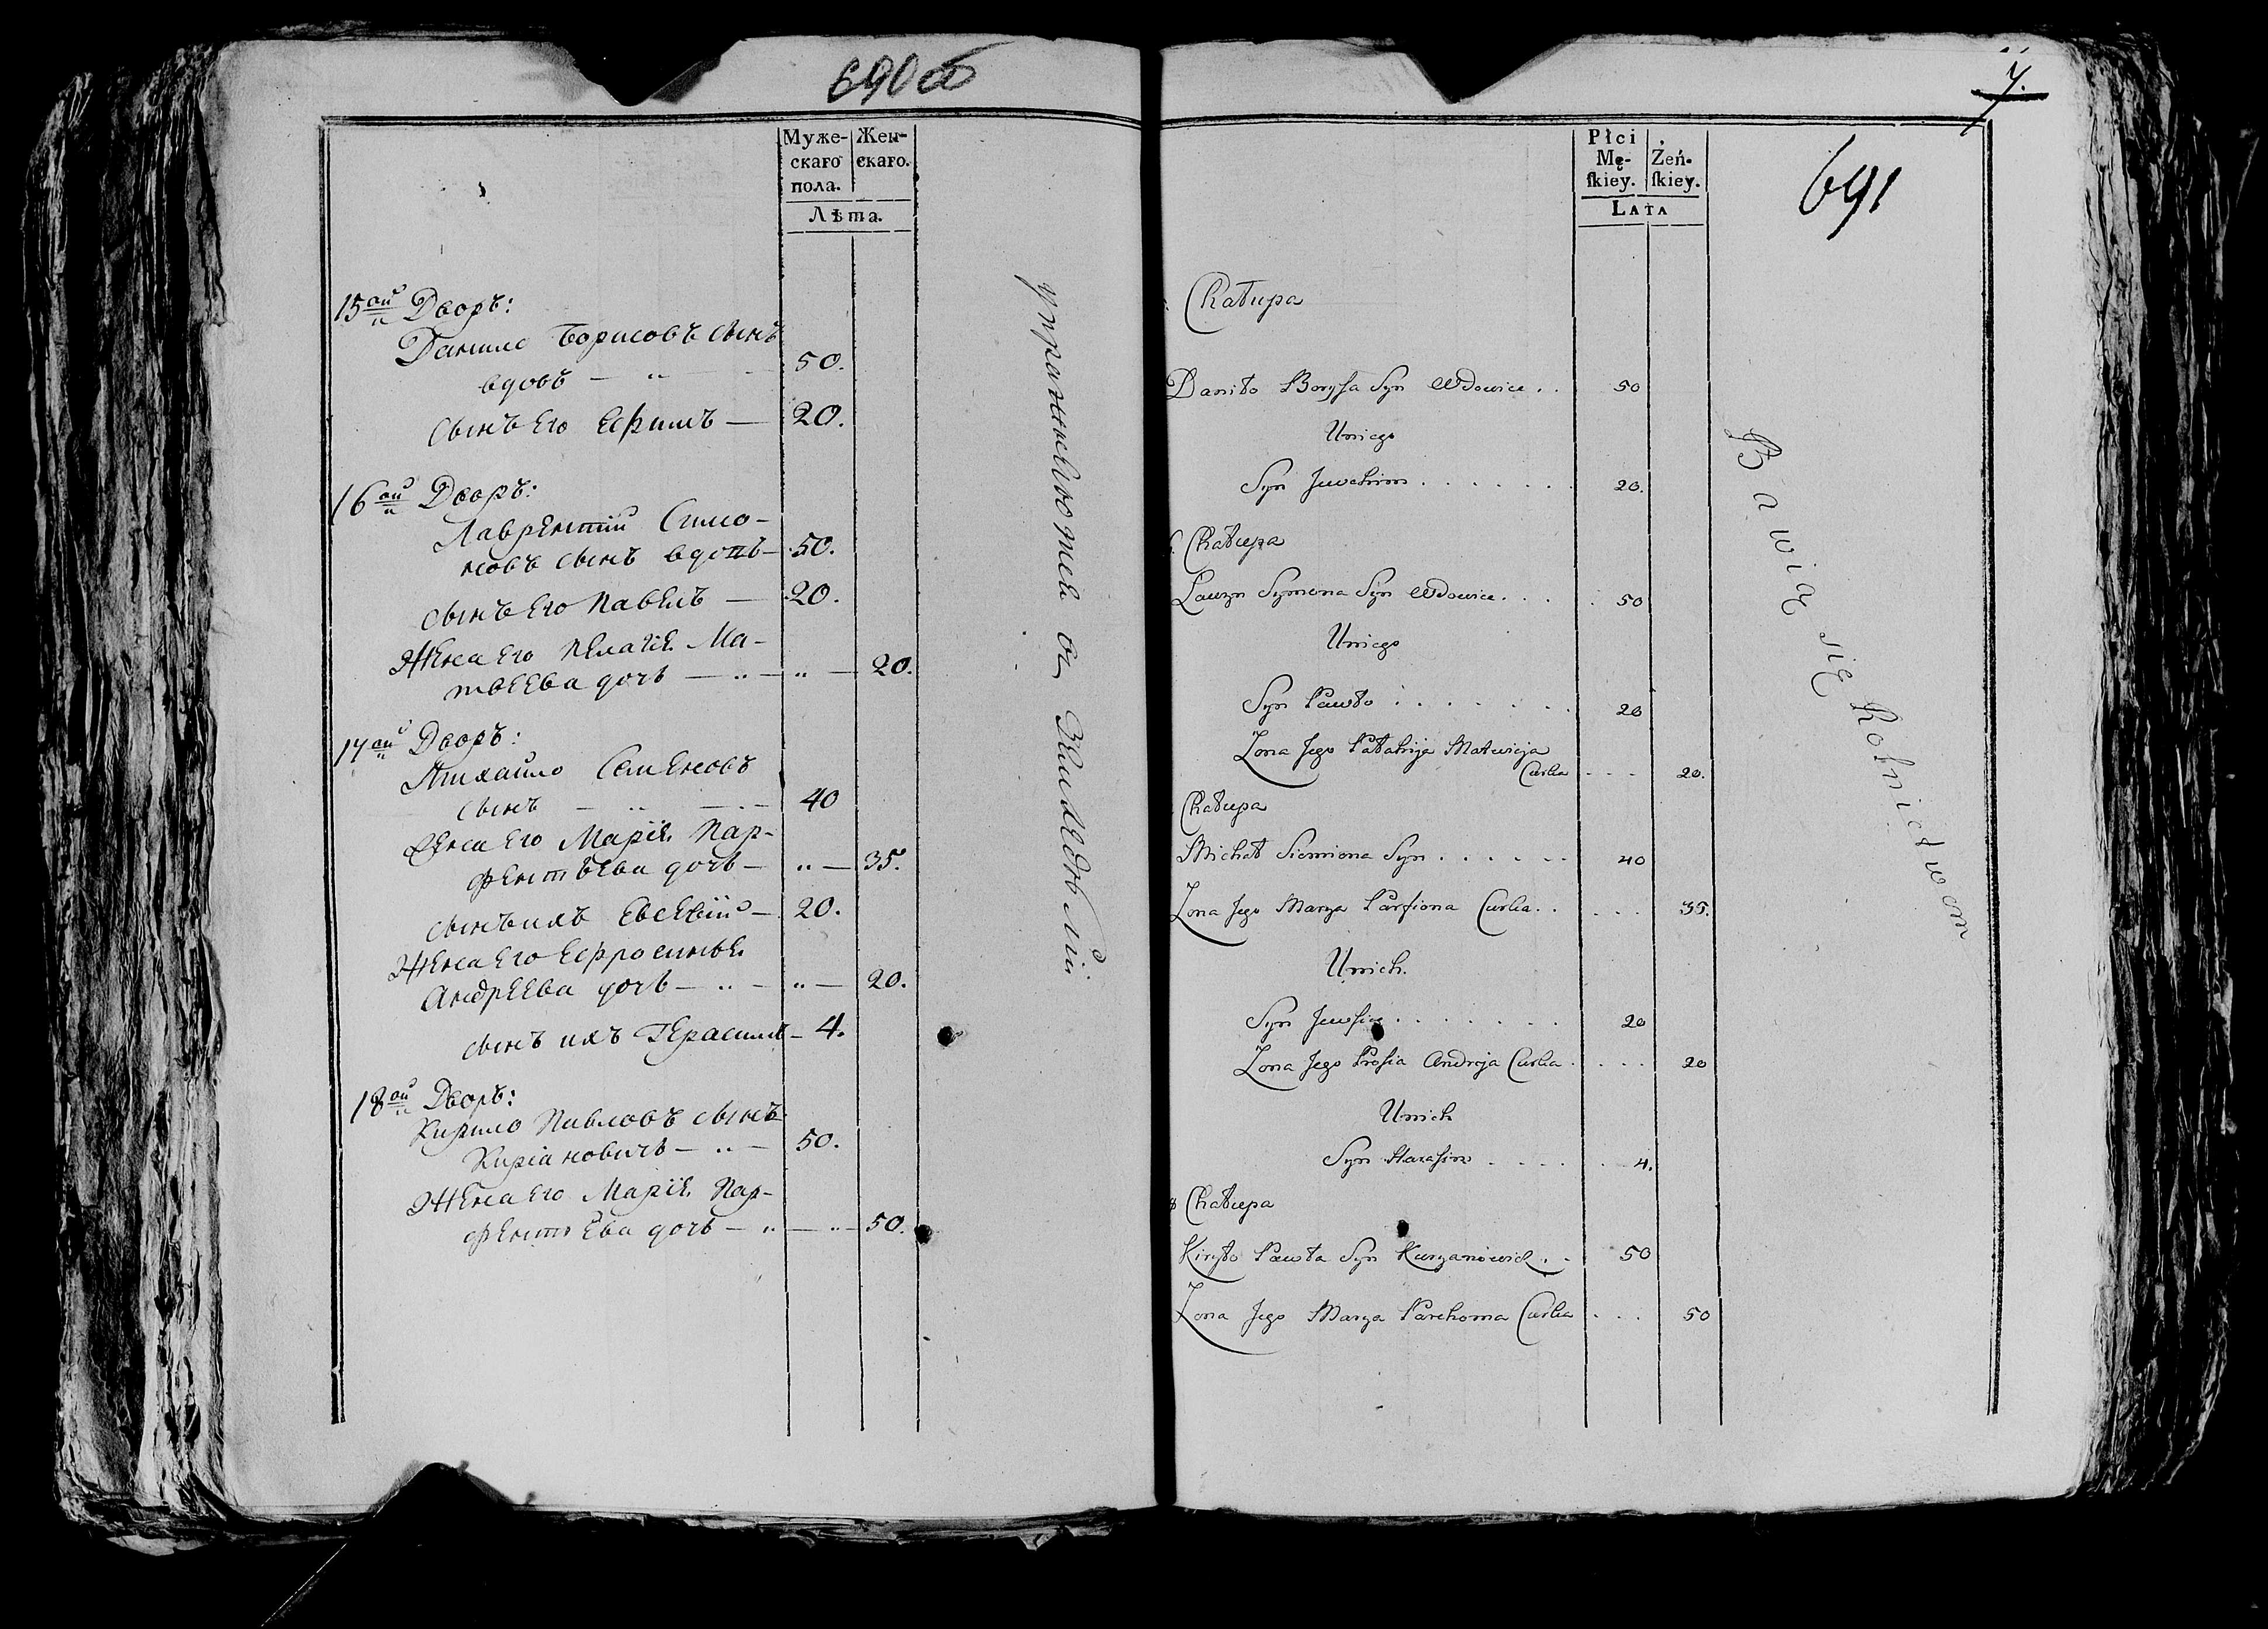 690об
Муже- Жен-
скаго скаго.
пола.
Лѣта.
15ый Дворъ:
Данило Борисовъ сынъ
вдовъ — „ — 50.
сынъ его Ефимъ — 20.
16ый Дворъ:
Лаврентий Симо-
новъ сынъ вдовъ — 50.
сынъ его Павелъ — 20.
Жена его Пелагія Ма-
твеева дочь — „ — „ — 20.
17ый Дворъ:
Михайло Семеновъ
сынъ — „ — 40
Жена его Марія Пар-
фентьева дочь — „ — 35.
сынъ ихъ Евсевий — 20.
Жена его Ефросинья
Андреева дочь — „ — „ — 20.
сынъ ихъ Герасимъ — 4.
18ый Дворъ:
Кирило Павловъ сынъ
Киріановичъ — „ — 50.
Жена его Марія Пар-
фентьева дочь — „ — „ — 50.
упражняются въ Земледѣлїй
7.
691
Płci
Mę- Żeń-
ſkiey. ſkiey.
LATA
Chałupa
Daniło Borysa Syn Wdowiec . . 50
Uniego
Syn Juochim . . . . . . 20.
Chałupa
Lauryn Symona Syn Wdowiec . . . . 50
Uniego
Syn Pawło . . . . . . 20
Zona Jego Pałahija Matwieja
Curka . . . 20.
Chałupa
Michał Siemiona Syn . . . . . . 40
Zona Jego Marya Parfiona Curka . . . . . 35.
Unich.
Syn Juwsiey . . . . . . . 20
Zona Jego Prosia Andreja Curka . . . . 20
Unich
Syn Harasim . . . . . 4.
8 Chałupa
Kiryło Pawła Syn Kuryanowicz . . 50
Zona Jego Marya Parchoma Curka . . . 50
Bawią się Rolnictwom